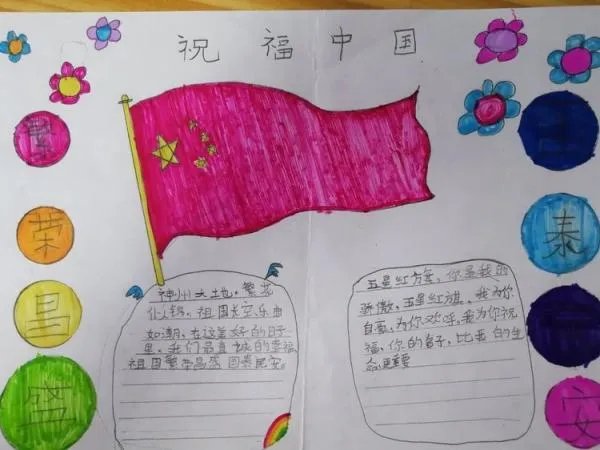 祝福中国
繁
荣
昌
盛
神州大地，繁花
似锦，祖国长空乐曲
如潮，在这美好的日子
里，我们最真诚的幸福
祖国繁荣昌盛 国泰民安。
五星红旗，你是我的
骄傲，五星红旗，我为你
自豪，为你欢呼，我为你祝
福，你的名子，比我的生
命更重要
泰
安